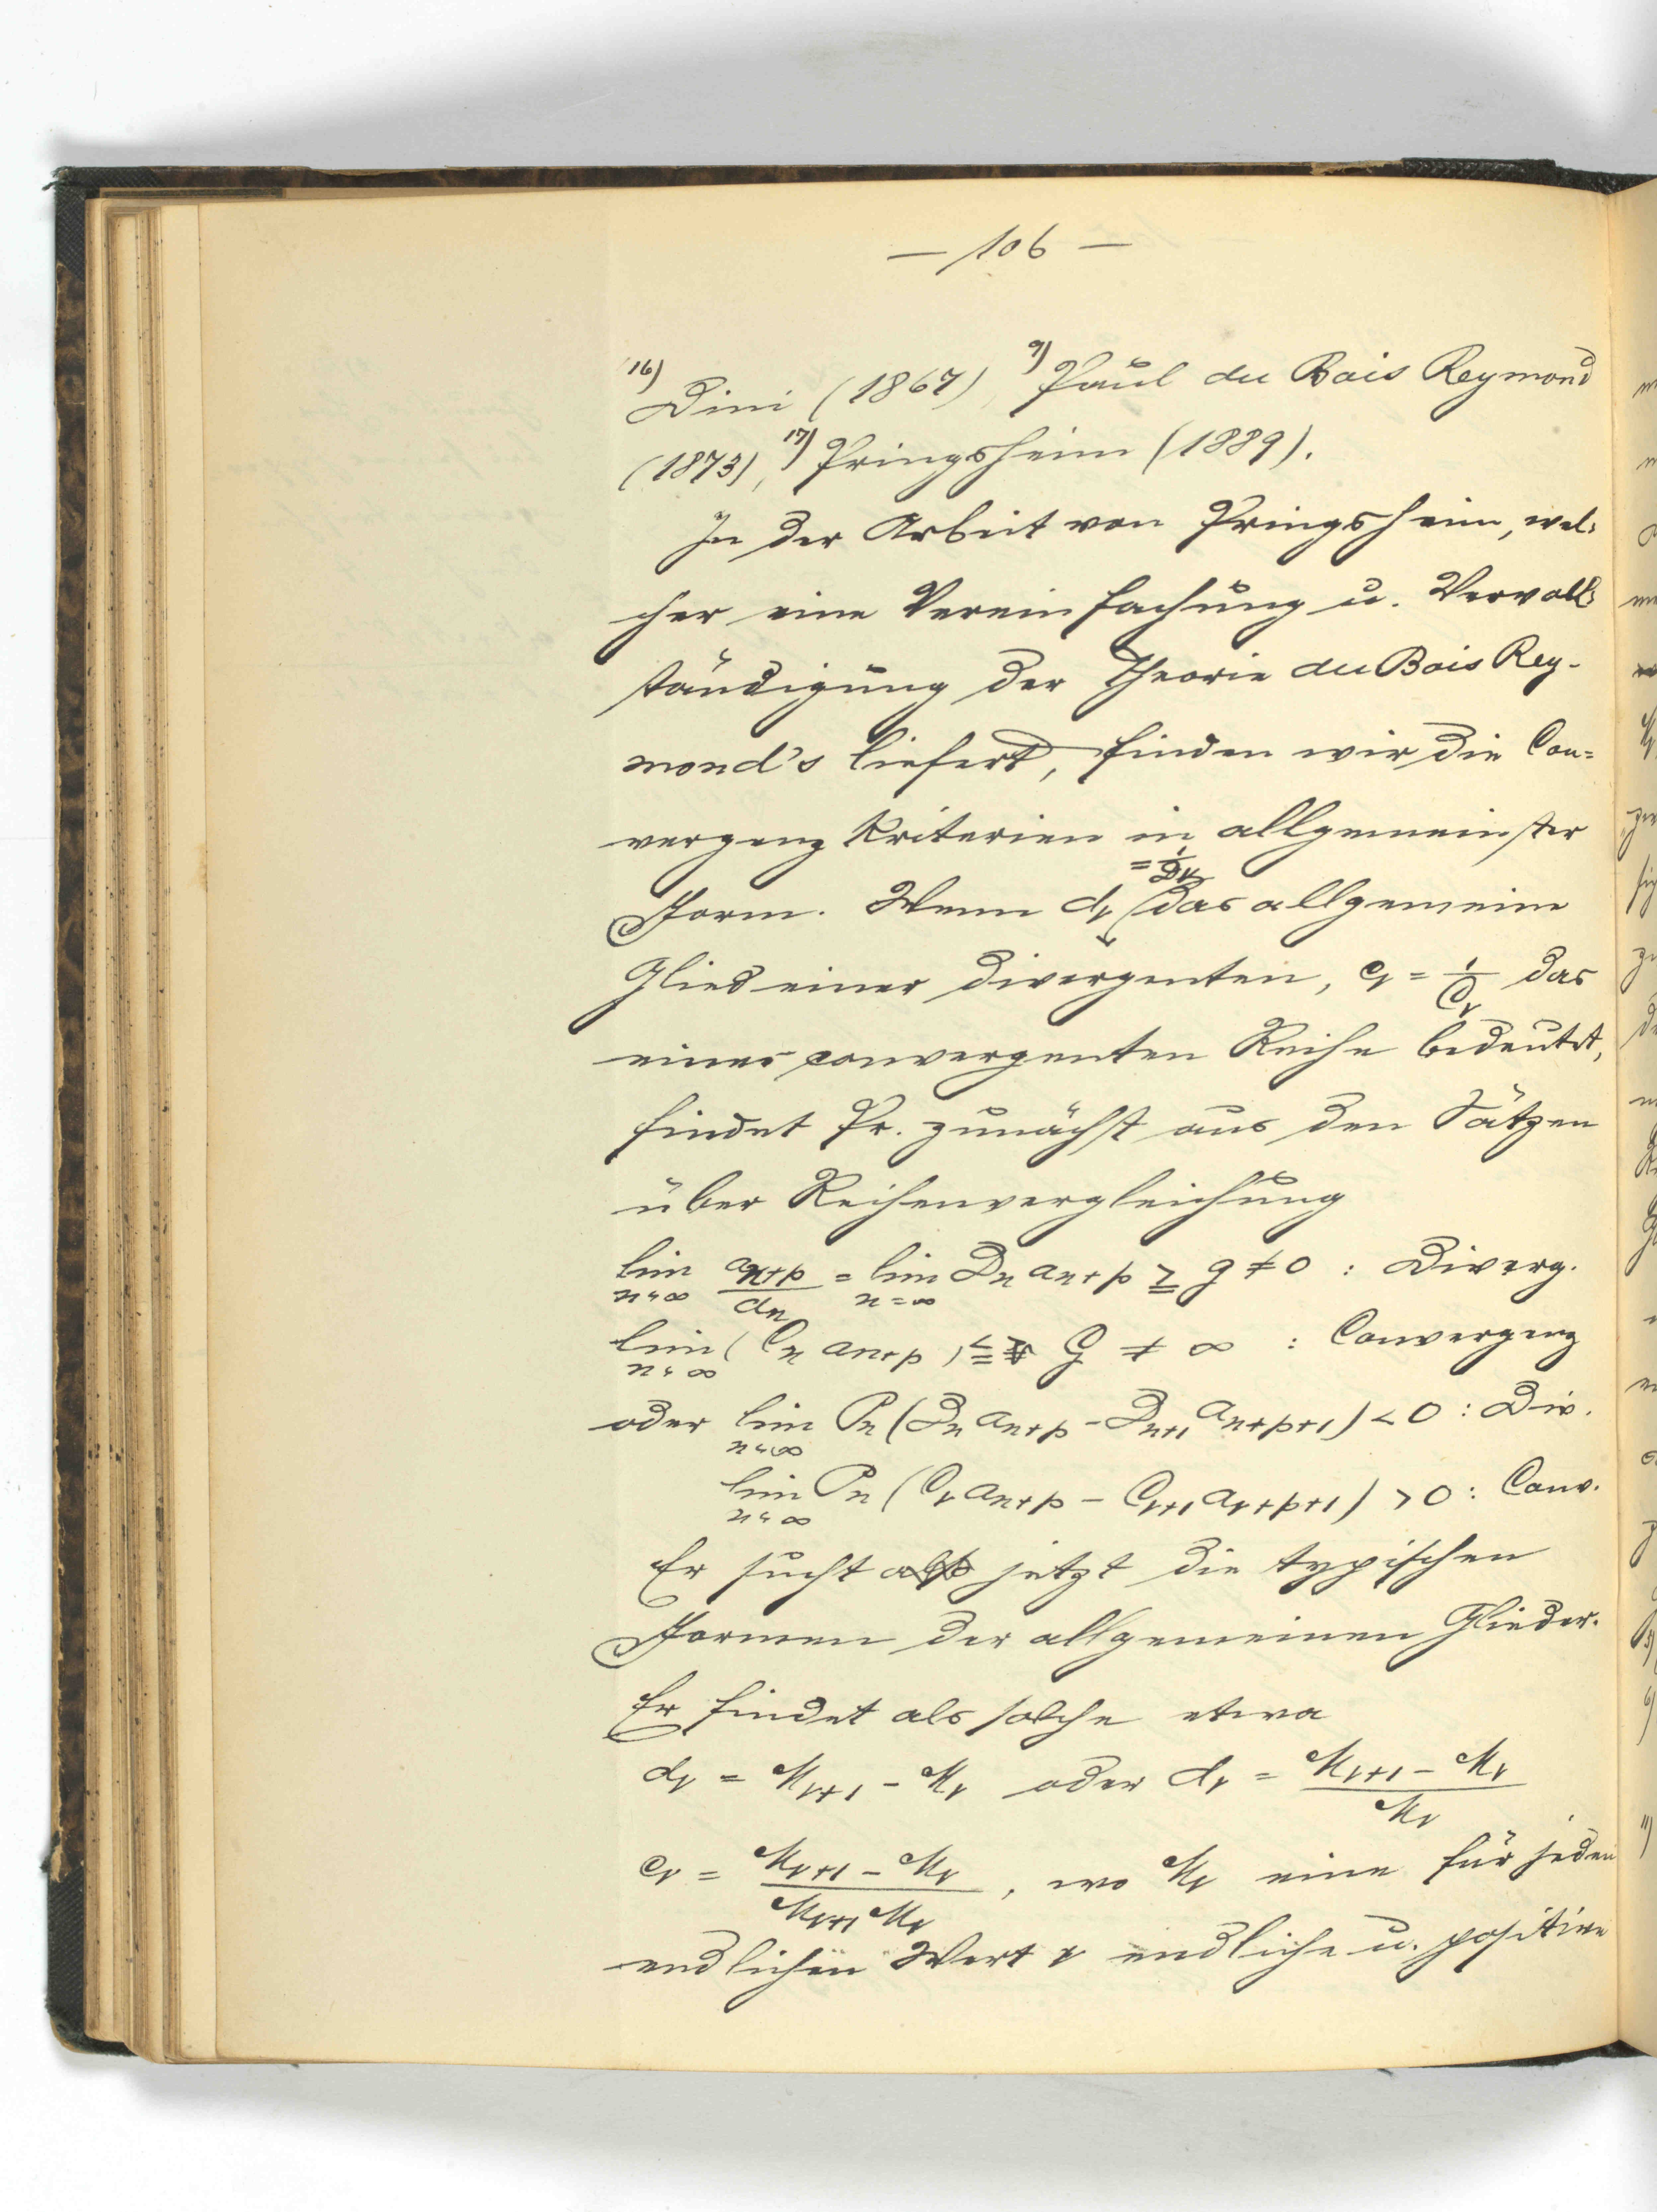 — 106 —
16) Dini (1867), 9) Paul du Bois Reymond
(1873), 17) Pringsheim (1889).
In der Arbeit von Pringsheim, wel=
cher eine Vereinfachung u. Vervoll=
ständigung der Theorie du Bois Rey-
mond's liefert, finden wir die Con=
vergenz Kriterien in allgemeinster
Form. Wenn dν = 1/Dν das allgemeine
Glied einer divergenten, cν = 1/Cν das
einer convergenten Reihe bedeutet,
findet Pr. zunächst aus den Sätzen
über Reihenvergleichung
lim n=∞ an+p/dn = lim n=∞ Dn an+p ≧ g ≠ 0 : Diverg.
lim n=∞ (Cn an+p) ≦ G ≠ ∞ : Convergenz
oder lim n=∞ Pn (Dn an+p - Dn+1 an+p+1) < 0 : Div.
lim n=∞ Pn (Cν an+p - Cν+1 aν+p+1) > 0 : Conv.
Er sucht jetzt die typischen
Formen der allgemeinen Glieder.
Er findet als solche etwa
dν = Mν+1 - Mν oder dν = Mν+1 - Mν / Mν
cν = Mν+1 - Mν / Mν+1 Mν, wo Mν eine für jeden
endlichen Wert ν endliche u. positive